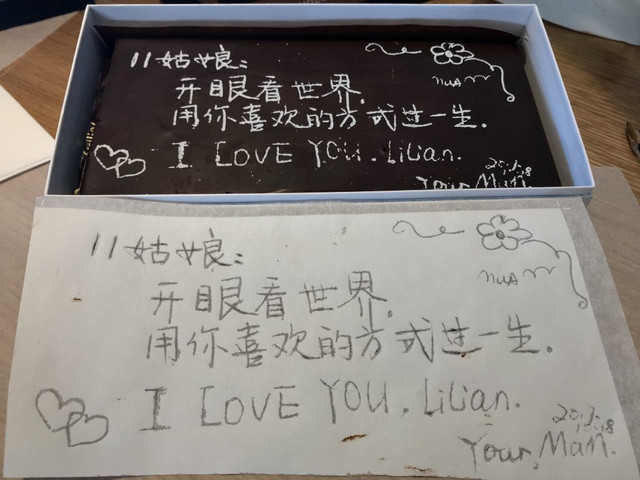 11姑娘:
开眼看世界.
用你喜欢的方式过一生.
I LOVE YOU. Lilian.
Your Man.
11姑娘:
开眼看世界.
用你喜欢的方式过一生.
I LOVE YOU. Lilian.
Your Man.